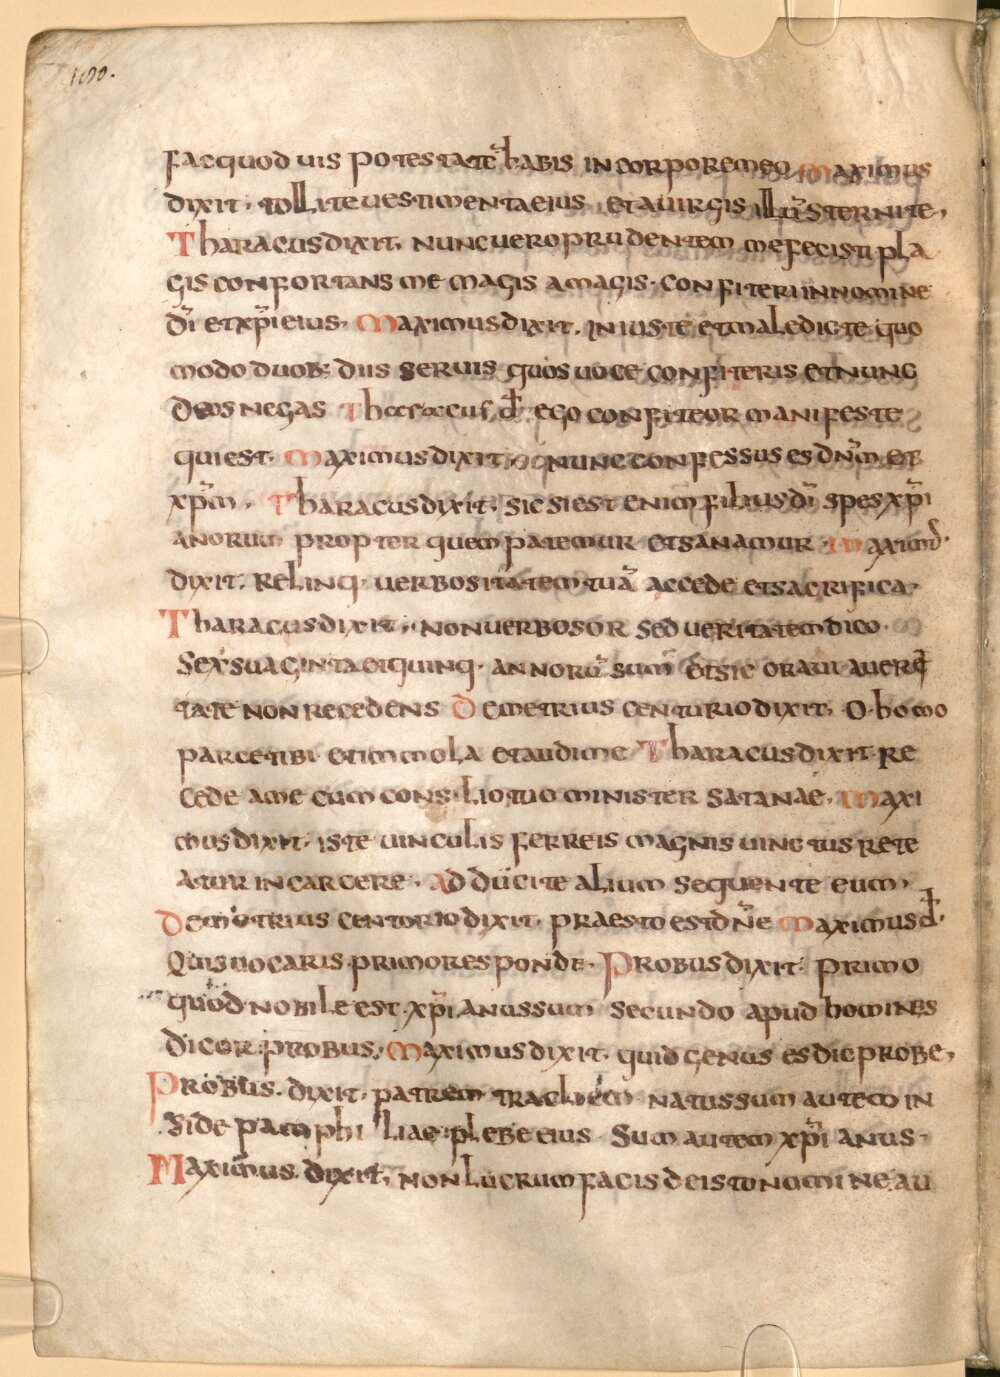 190.
fac quod uis potestatē habis in corpore meo maximus
dixit. tollite uestimenta eius et a uirgis illū sternite,
Tharacus dixit. nunc uero prudentem me fecisti pla
gis confortans me magis a magis. confiteri in nomine
dī et xp̄i eius. Maximus dixit. iniuste et maledicte quo
modo duob; diis seruis quos uoce confiteris et nunc
deos negas Tharacus d̄ ego confiteor manifeste
qui est. Maximus dixit. nunc confessus es dn̄m et
xp̄m. Tharacus dixit. sic si est enim filius dī spes xp̄i
anorum propter quem patemur et sanamur. Maximꝰ
dixit. Relinq; uerbositatem tuā accede et sacrifica.
Tharacus dixit. non uerbosor sed ueritatem dico.
Sexsuaginta et quinq. annorū sum et sic oraui a ueri
tate non recedens Demetrius centurio dixit. O homo
parce tibi et immola et audi me Tharacus dixit re
cede a me cum consilio tuo minister satanae. Maxi
mus dixit. iste uinculis ferreis magnis uinctus rete
atur in carcere. Adducite alium sequente eum,
Demetrius centorio dixit. praesto est dn̄e Maximus d̄.
Quis uocaris primo responde. Probus dixit. primo
quod nobile est. xp̄ianus sum secundo apud homines
dicor probus. Maximus dixit. quid genus es dic probe,
Probus. dixit. patrem trachem natus sum autem in
side pamphiliae plebe eius Sum autem xp̄ianus.
Maximus. dixit. non lucrum facis deisto nomine au